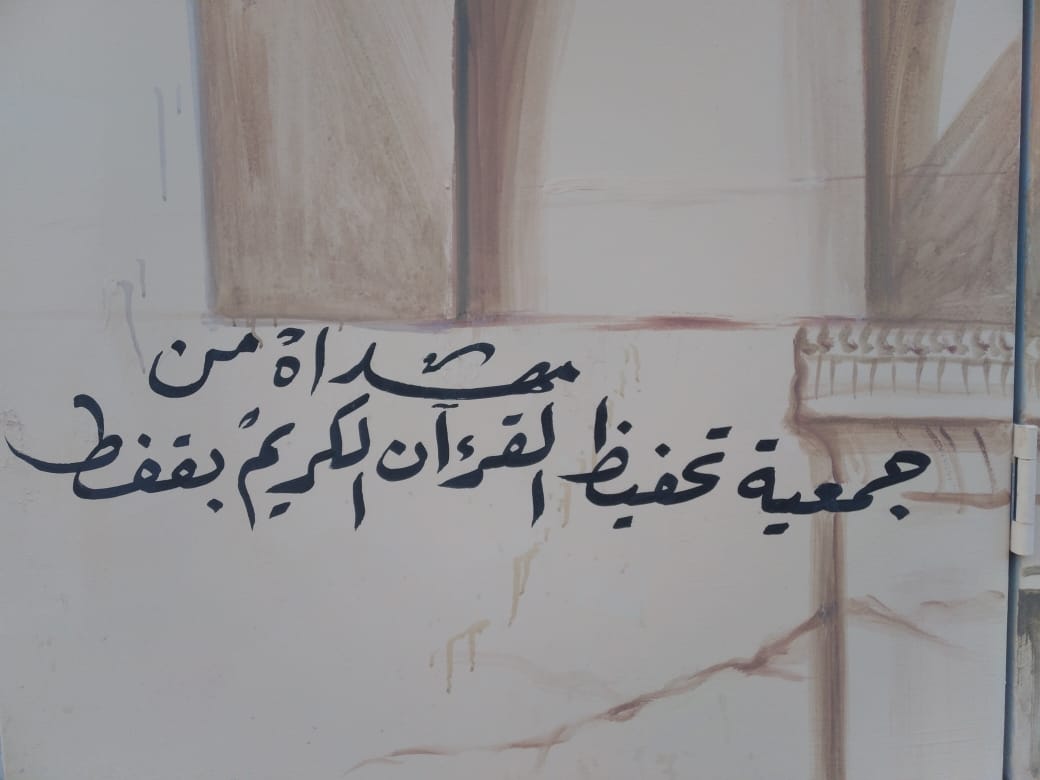 مهداة من
جمعية تحفيظ القرءآن الكريم بقفط